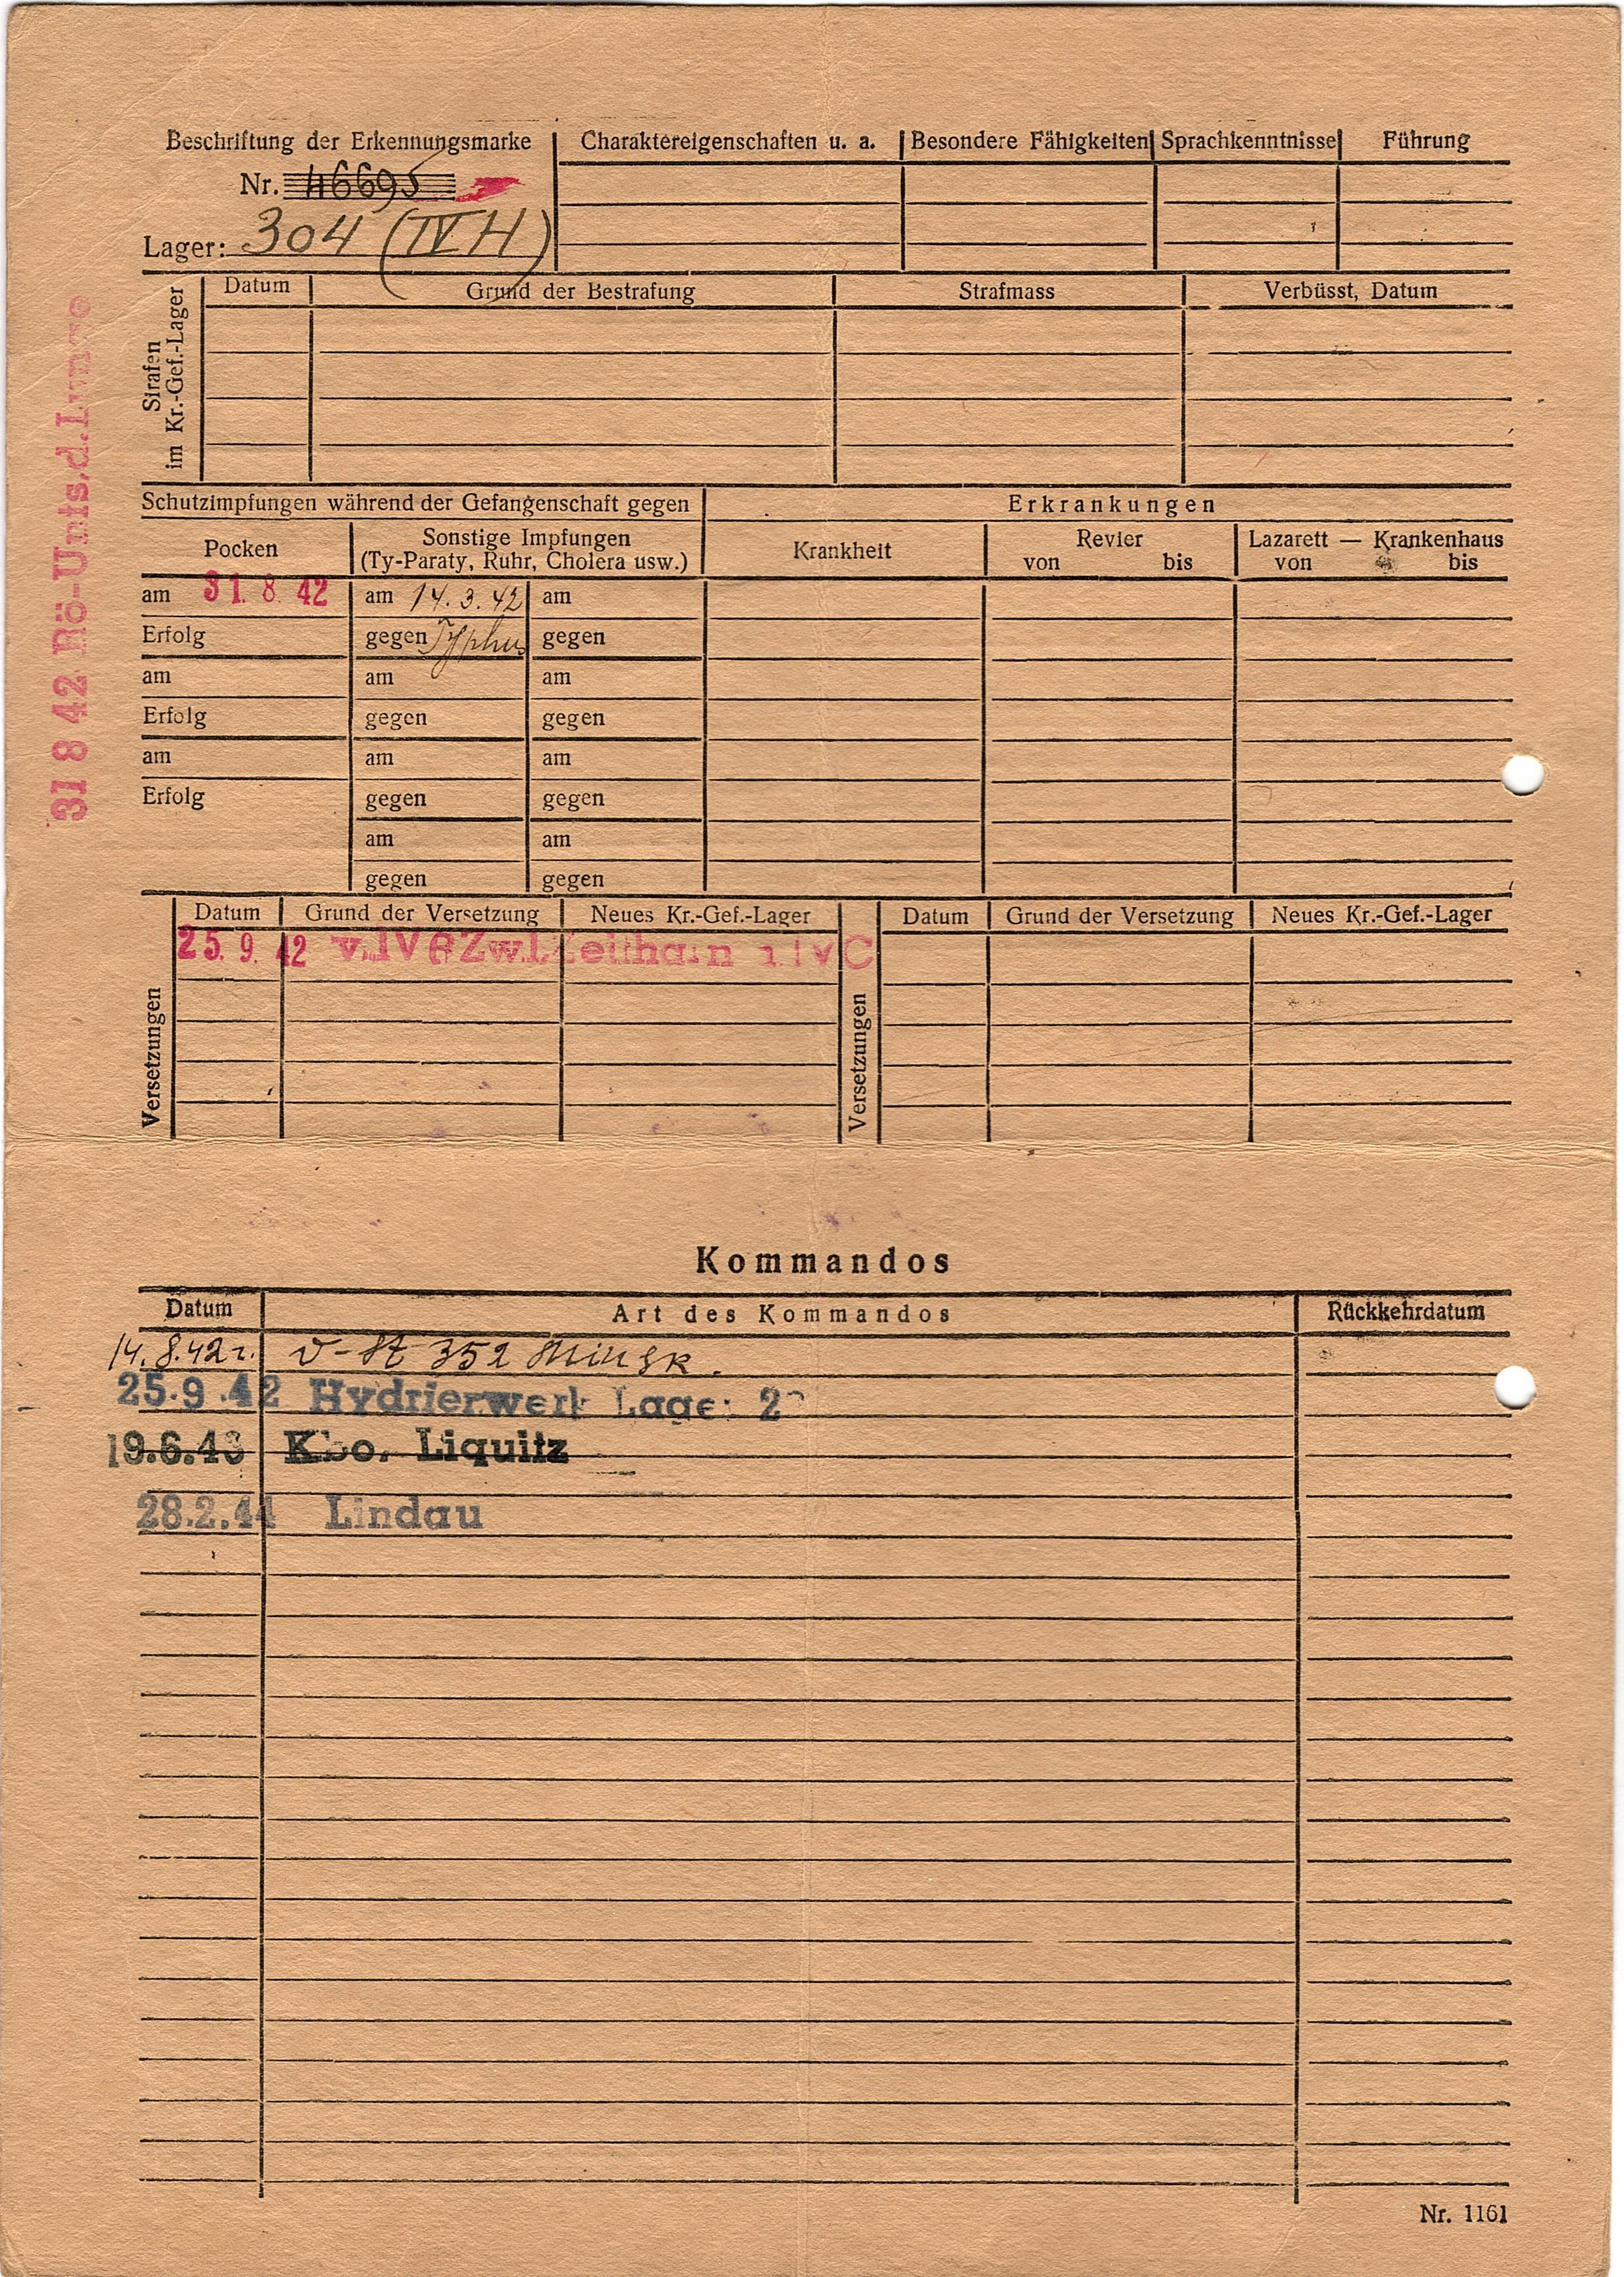 Beschriftung der Erkennungsmarke Charaktereigenschaften u. a. Besondere Fähigkeiten Sprachkenntnisse Führung
Nr. 46695
Lager: 304 (IV H)
Strafen im Kr.-Gef.-Lager
Datum Grund der Bestrafung Strafmass Verbüsst, Datum
31 8 42 Rö-Unts.d.Lunge
Schutzimpfungen während der Gefangenschaft gegen Erkrankungen
Pocken Sonstige Impfungen Krankheit Revier Lazarett — Krankenhaus
(Ty-Paraty, Ruhr, Cholera usw.) von bis von bis
am 31. 8. 42 am 14.3.42 am
Erfolg gegen Typhus gegen
am am am
Erfolg gegen gegen
am am am
Erfolg gegen gegen
am am
gegen gegen
Versetzungen
Datum Grund der Versetzung Neues Kr.-Gef.-Lager
25. 9. 42 v. IV B Zw.L. Zeithain IV C
Versetzungen
Datum Grund der Versetzung Neues Kr.-Gef.-Lager
Kommandos
Datum Art des Kommandos Rückkehrdatum
14.8.42 352 Minsk.
25.9.42 Hydrierwerk Lager 2
19.6.43 Kdo. Liquitz
28.2.44 Lindau
Nr. 1161